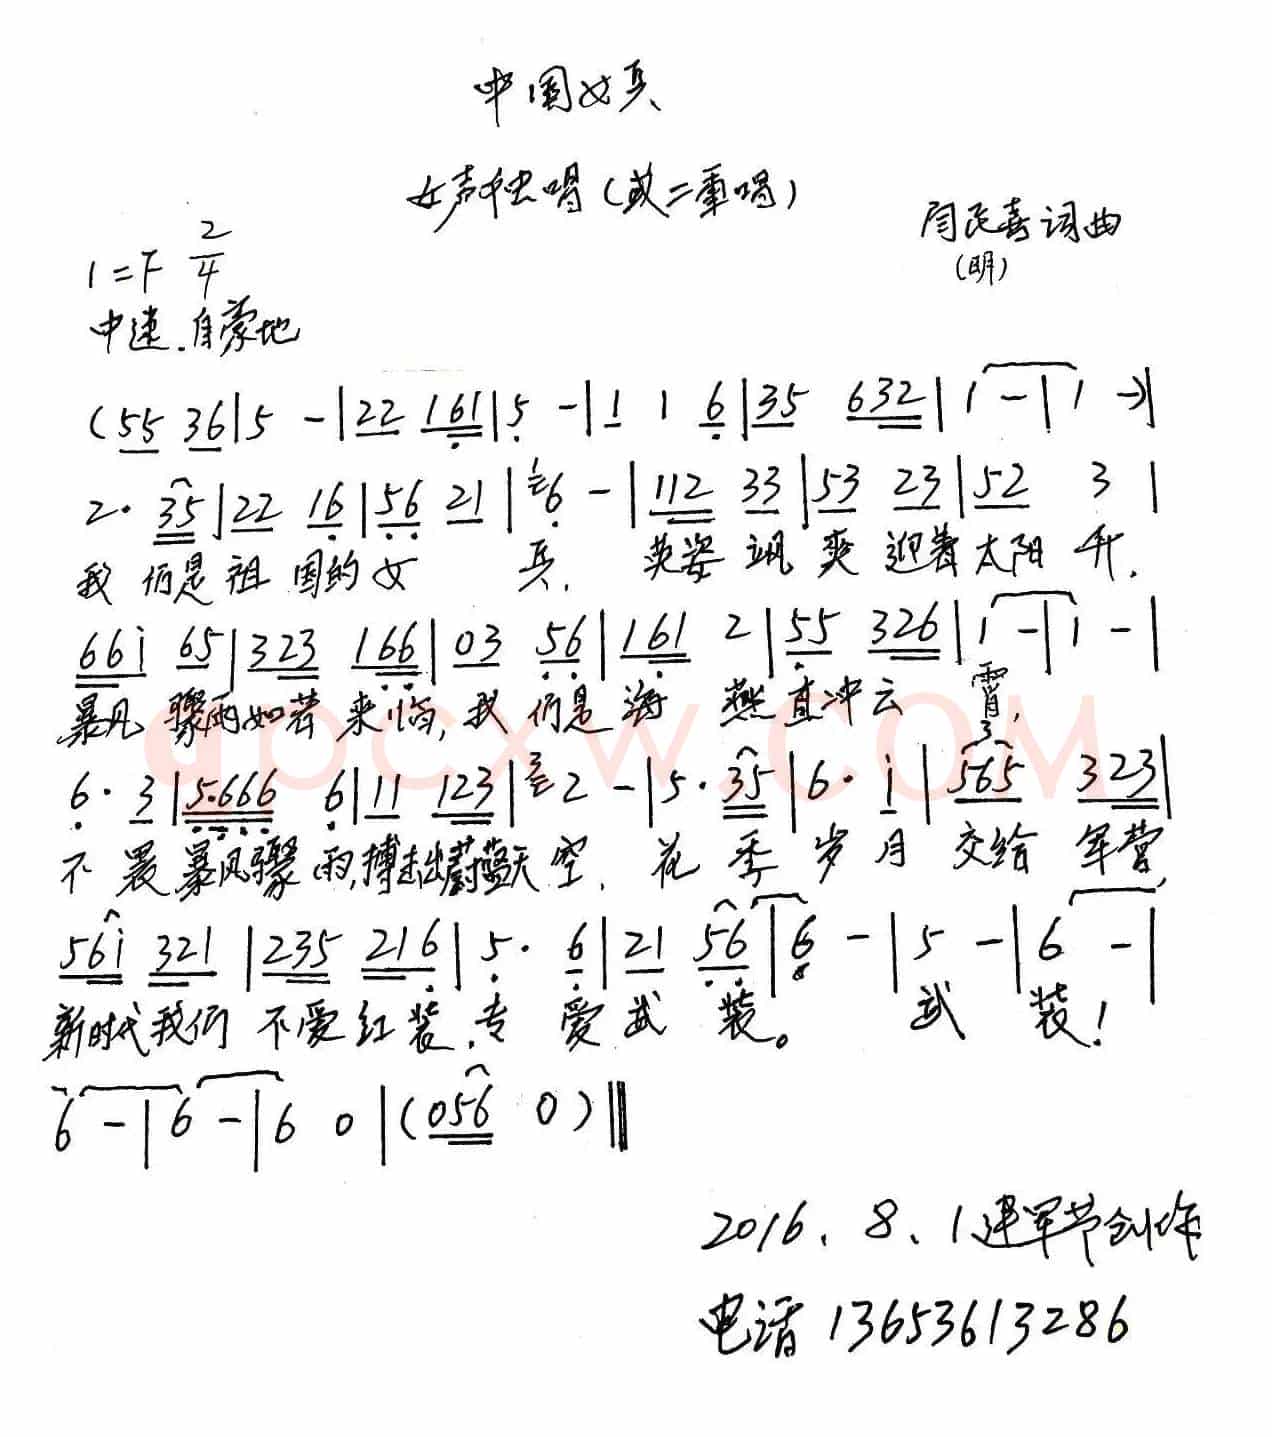 中国女兵
女声独唱(或二重唱)
闫民喜词曲
(明)
1=F 2/4
中速.自豪地
(55 36|5 -|22 161|5 -|1 1 6|35 632|1 -|1 -)|
2· 35|22 16|56 21|1 6 -|112 33|53 23|52 3|
我 们是祖 国的女 兵, 英姿 飒爽 迎着太阳 升,
66i 65|323 166|03 56|161 2|55 326|1 -|1 -|
暴风 骤雨如若 来临,我 们是海 燕直冲云 霄,
6· 3|5·666 6|11 123|3 2 -|5· 35|6· i|565 323|
不 畏暴风骤 雨,搏击出蔚蓝天 空, 花 季 岁 月 交给 军营,
56i 321|235 216|5· 6|21 56|6 -|5 -|6 -|
新时代我们 不爱红装,专 爱武 装。 武 装!
6 -|6 -|6 0|(056 0)‖
2016、8、1建军节创作
电话 13653613286
apcxw.com